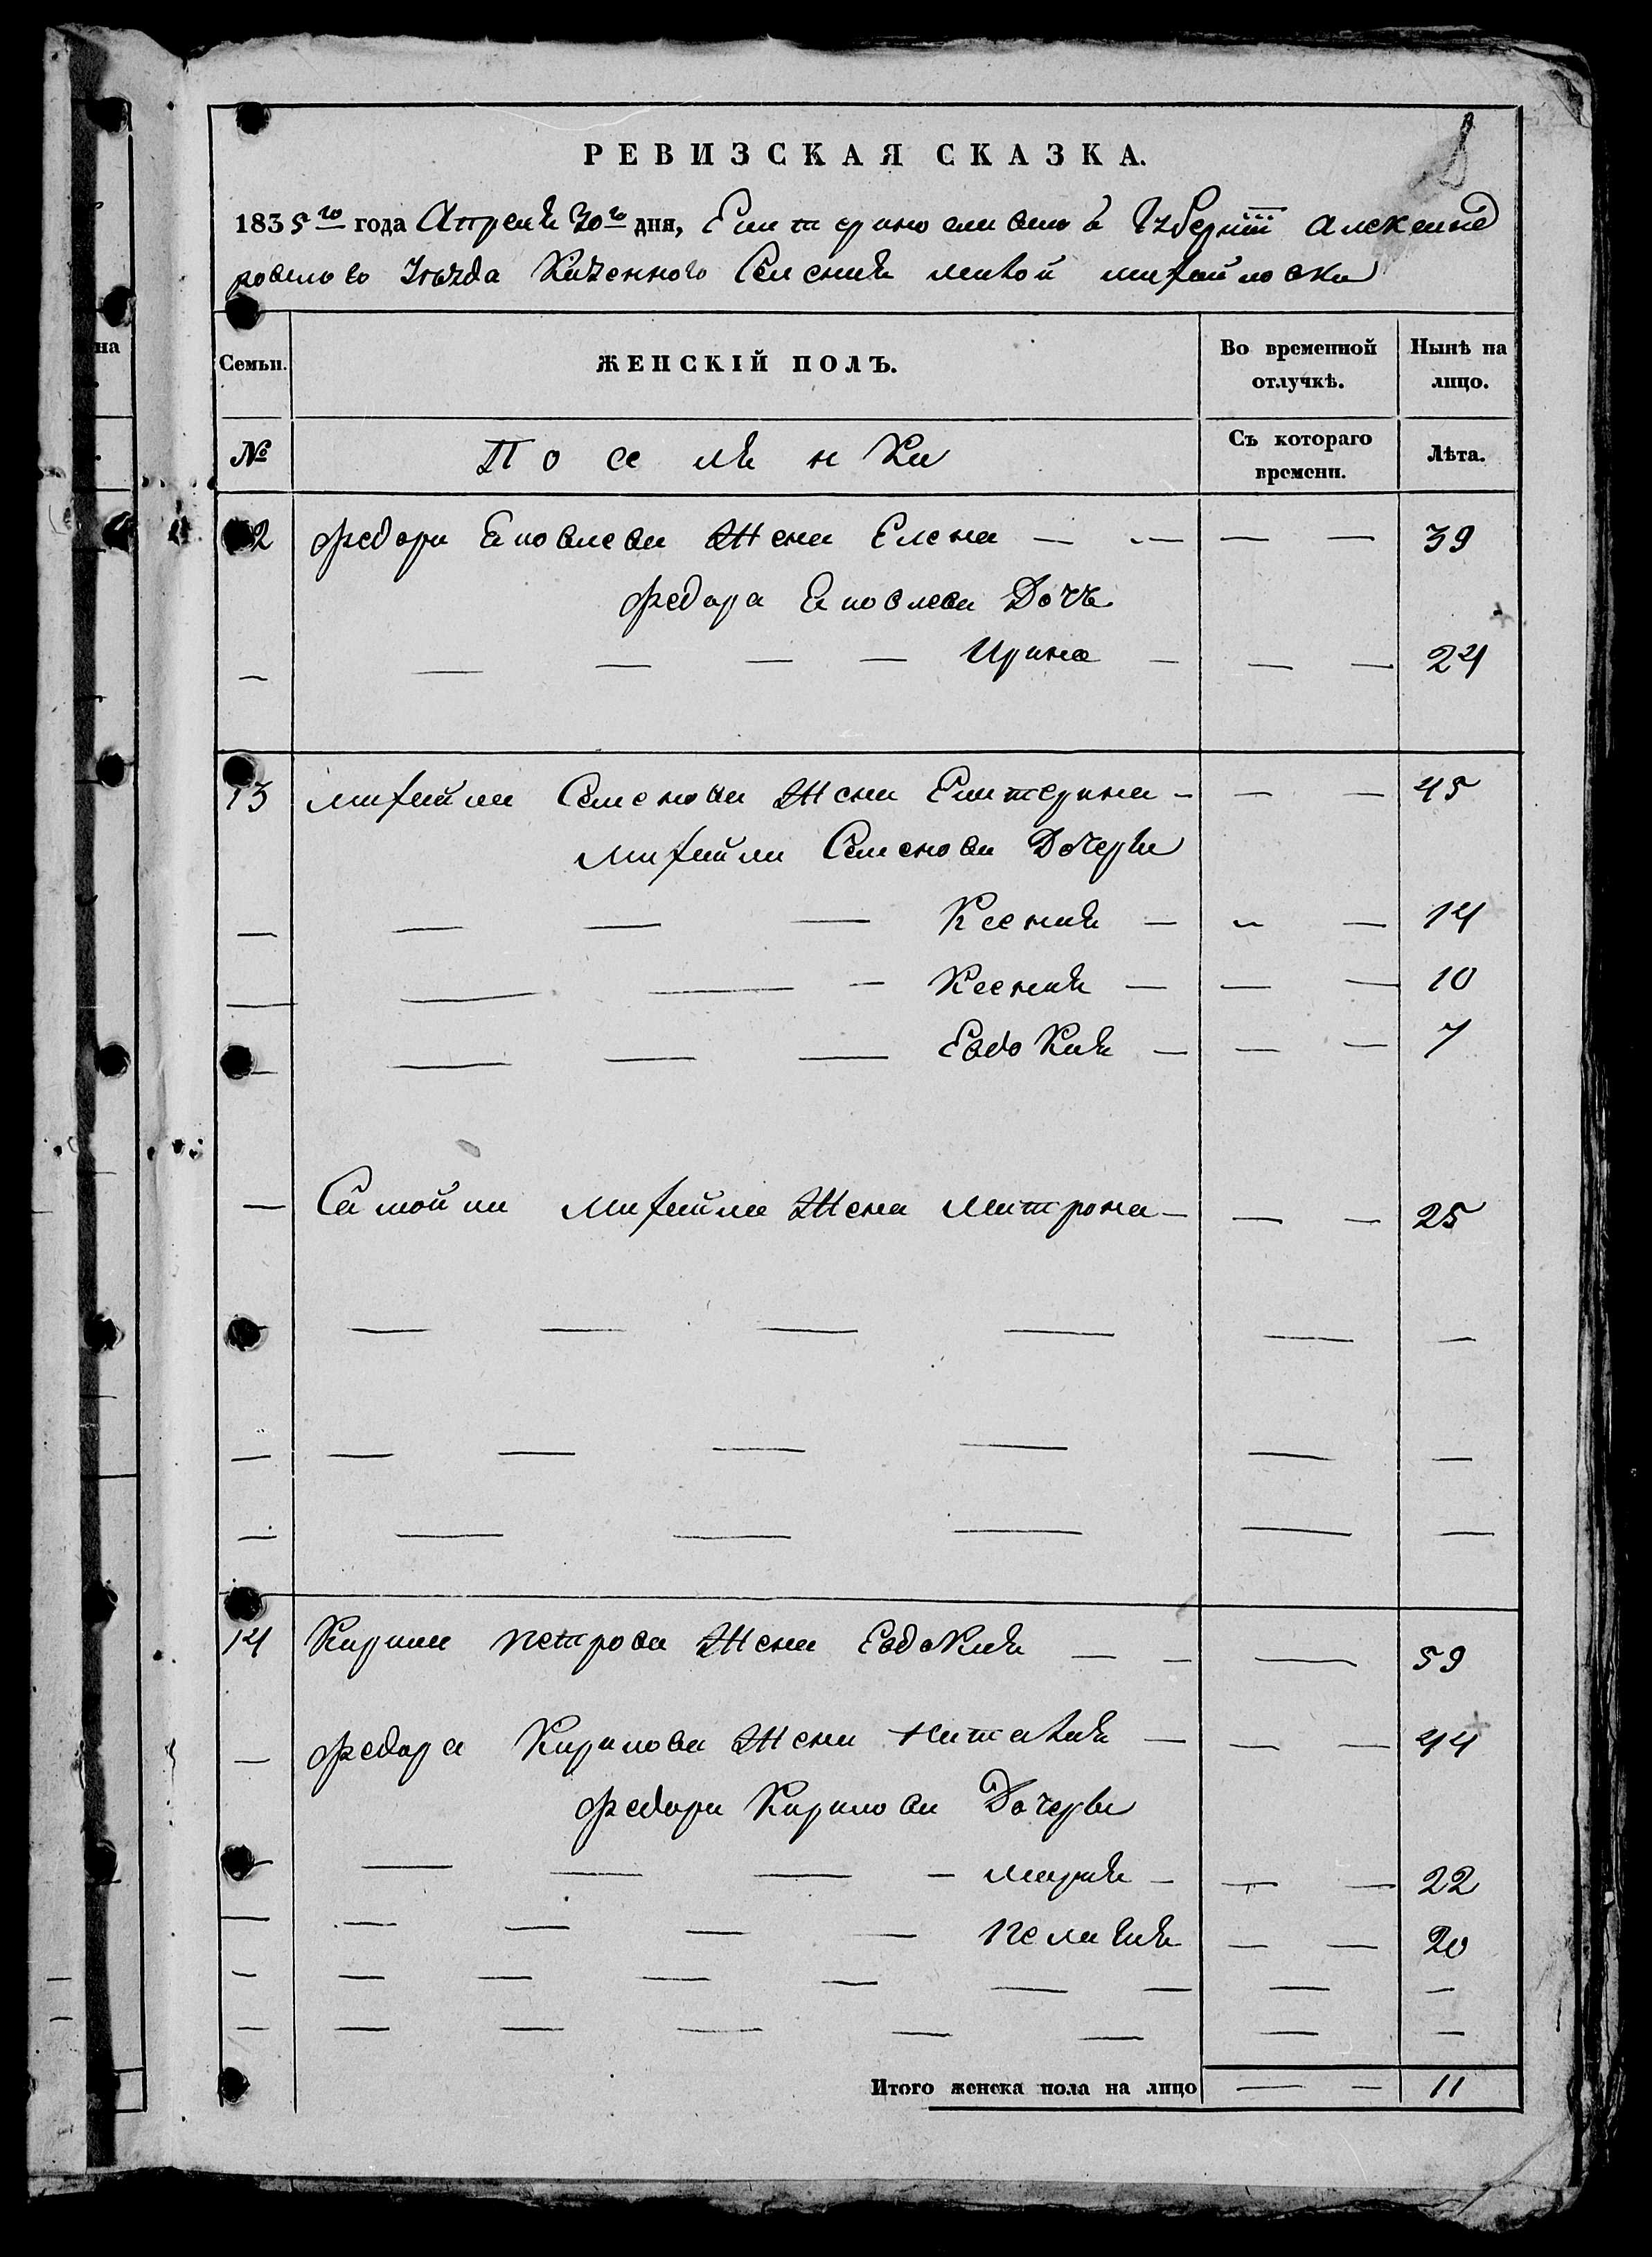 РЕВИЗСКАЯ СКАЗКА.
1835го года Апреля 30го дня, Екатериносславской Губернии Александ
ровского Уезда Казенного Селения малой михайловки
на
Семьи. ЖЕНСКІЙ ПОЛЪ. Во временной отлучкѣ. Нынѣ на лицо.
№ Поселянки Съ котораго времени. Лѣта.
12 федора Яковлева Жена Елена — — — — 39
федора Яковлева Дочь
— — — — — Ирина — — — 24
13 михайла Семенова Жена Екатерина — — — 45
михайла Семенова Дочери
— — — — Ксения — — — 14
— — — — Ксения — — — 10
— — — — Евдокия — — — 7
— Самойла михайла Жена матрона — — — 25
— — — — — — —
— — — — — — —
— — — — — —
14 Кирила петрова Жена Евдокия — — — 59
— федора Кирилова Жена наталия — — — 44
федора Кирилова Дочери
— — — — — мария — — — 22
— — — — — пелагия — — 20
— — — — — — — — —
— — — — — — — —
Итого женска пола на лицо — — 11